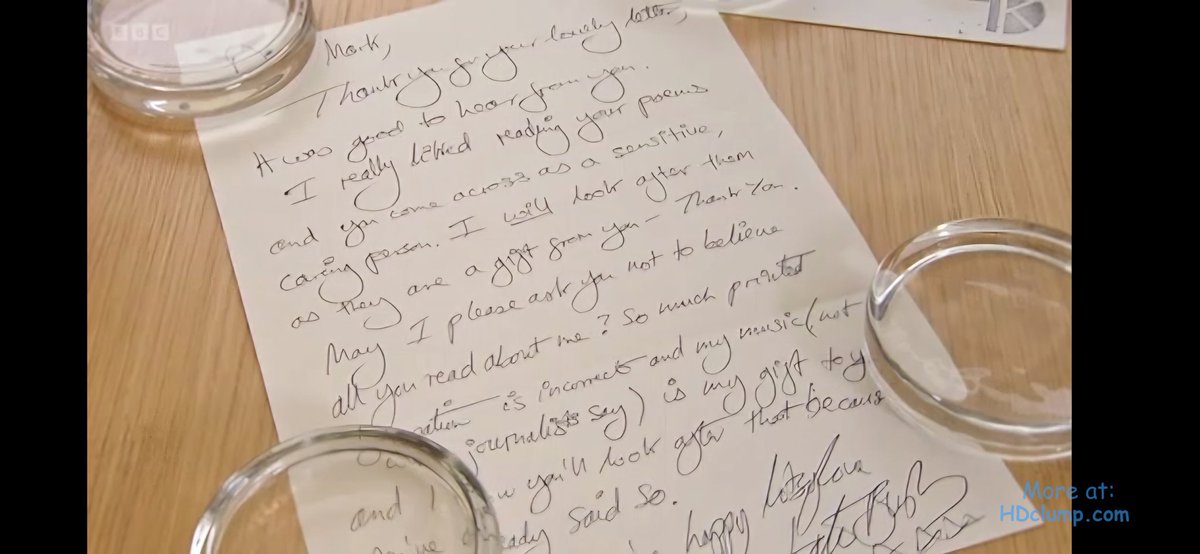 BBC
Mark,
Thank you for your lovely letter,
it was good to hear from you.
I really liked reading your poems
and you come across as a sensitive,
caring person. I will look after them
as they are a gift from you - Thank You.
May I please ask you not to believe
all you read about me? So much printed
is incorrect and my music (not
journalists say) is my gift to
and I you'll look after that
already said so.
happy
More at:
HDclump.com